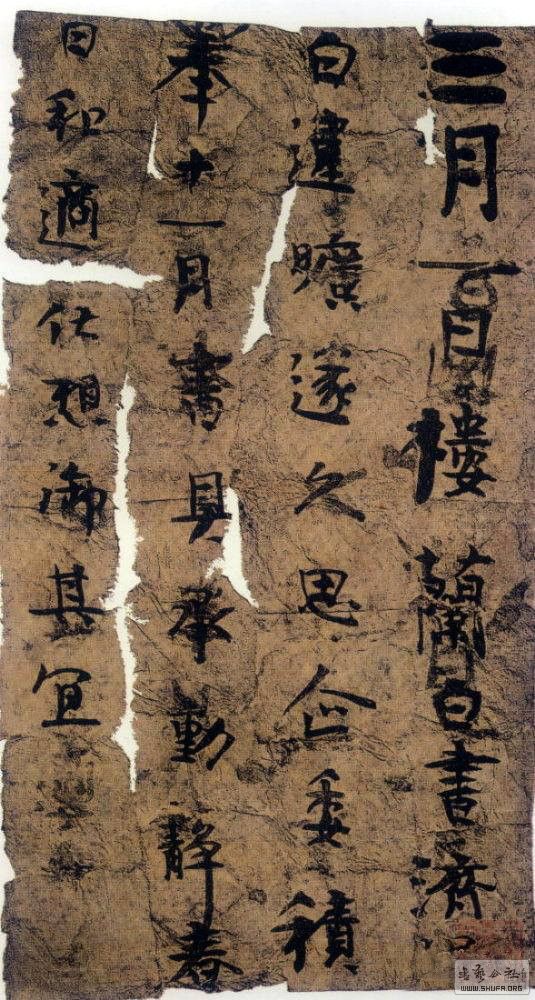 三月一日樓蘭白書濟
白違曠遂久思企委積
奉十一月書具承動靜春
日和適伏想御其宜
書藝公社
WWW.SHUFA.ORG